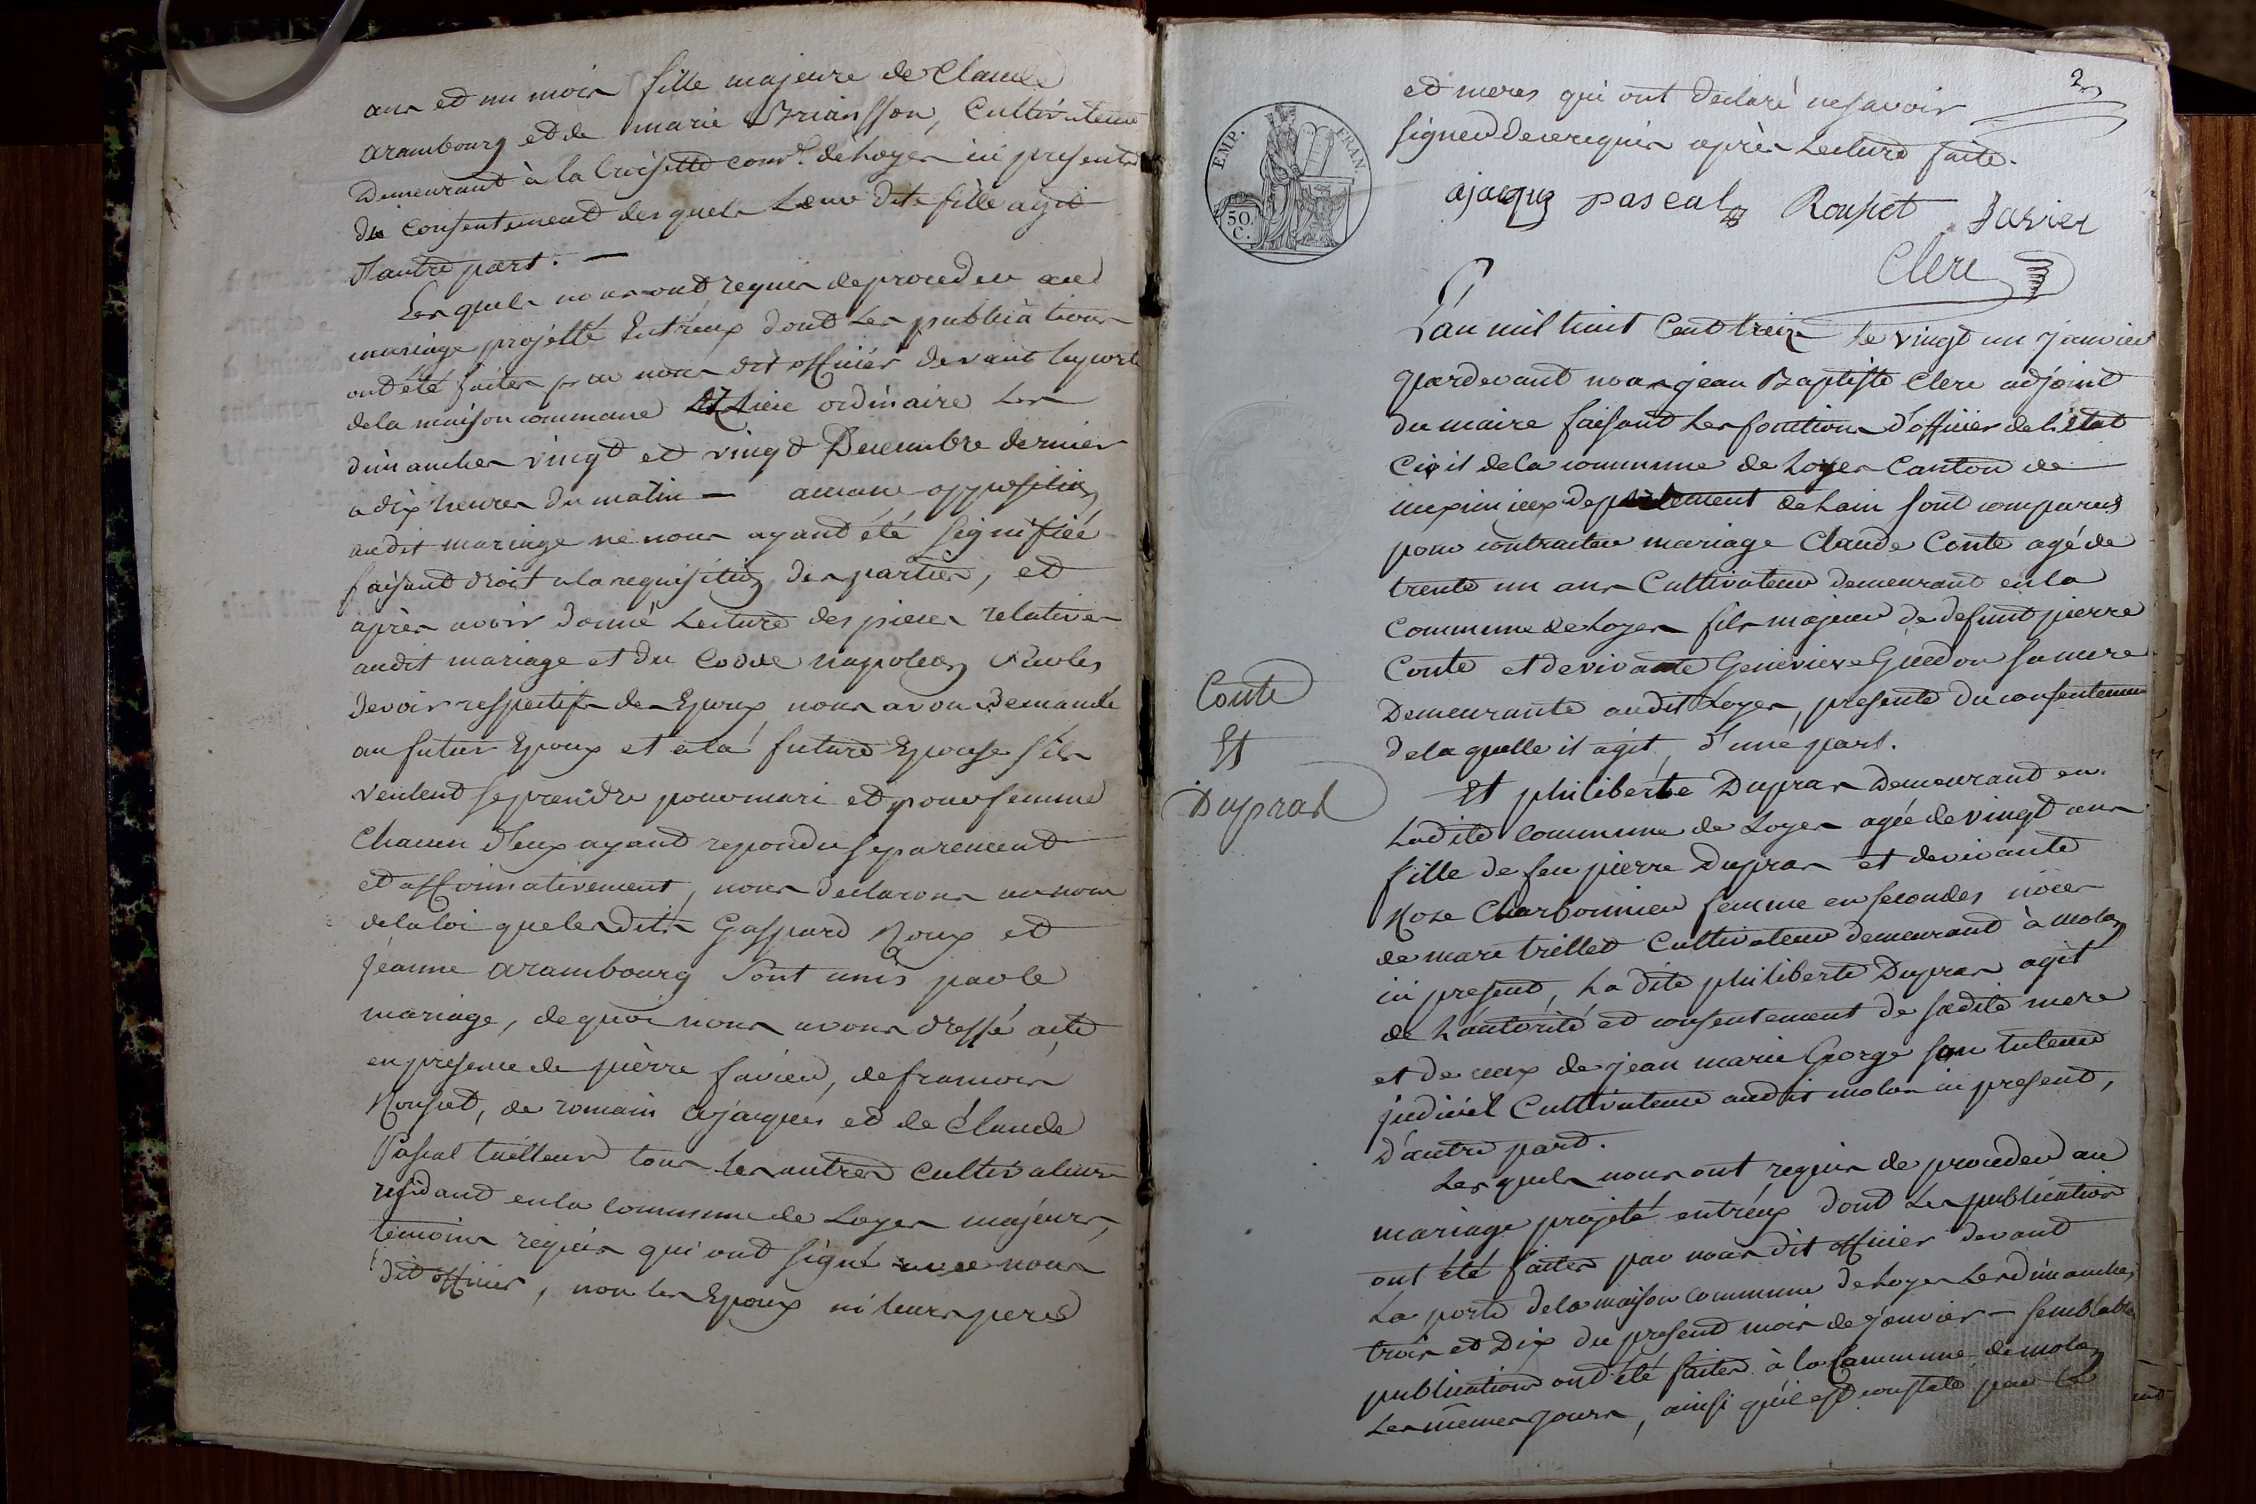 ans et un mois fille majeure de Claude
arambourg et de marie Briansson, Cultivateur
Demeurant à la Croisette com.e de Loyes ici presents
du consentement des quels Leur dite fille agit
d'autre part. —
Les quels nous ont requis de proceder au
mariage projetté Entr'eux dont Les publications
ont été faites par nous dit officier devant la porte
de la maison commune Et Lieu ordinaire Les
dimanches vingt et vingt Decembre dernier
a dix heures du matin — aucune opposition
audit mariage ne nous ayant été signifiée
faisant droit a la requisition des parties, et
après avoir donné Lecture des pieces relatives
audit mariage et du Code napoleon sur les
devoirs respectifs des Epoux nous avons demandé
au futur Epoux et à la future Epouse s'ils
veulent se prendre pour mari et pour femme
Chacun d'eux ayant repondu separement
et affirmativement, nous declarons au nom
de la loi que les dits Gaspard Roux et
jeanne arambourg Sont unis par le
mariage, de quoi nous avons dressé acte
en presence de pierre favier, de francois
Rouset, de romain ajaques et de Claude
Pascal tailleur tous les autres Cultivateurs
residant en la commune de Loyes majeurs,
temoins requis qui ont signé avec nous
dit officier, non les Epoux ni leurs peres
2
et meres qui ont declaré ne savoir
signer de ce requis après Lecture faite.
EMP. FRAN.
50 C.
ajaques pascal Rouset favier
Clerc
L'an mil huit Cent treize le vingt un janvier
pardevant nous jean Baptiste Clerc adjoint
du maire faisant Les fonctions d'officier de l'état
Civil de la commune de Loyes Canton de
meximieux departement de Lain sont comparus
pour contracter mariage Claude Conte agé de
trente un ans Cultivateur demeurant en la
Commune de Loyes fils majeur de defunt pierre
Conte et de vivante Genevieve Guedon sa mere
Demeurante audit Loyes, presente du consentement
de la quelle il agit, d'une part.
Conte
Et
Dupras
Et philiberte Dupras Demeurant en
Ladite commune de Loyes agée de vingt ans
fille de feu pierre Dupras et de vivante
Roze Charbonnier femme en secondes noces
de marc trillet Cultivateur demeurant à molon
ici present, La dite philiberte Dupras agit
de L'autorité et consentement de sadite mere
et de ceux de jean marie George son tuteur
judiciel Cultivateur audit molon ici present,
D'autre part.
Les quels nous ont requis de proceder au
mariage projeté entr'eux dont Les publications
ont été faites par nous dit officier devant
La porte de la maison commune de Loyes Les dimanches
trois et Dix du present mois de janvier — semblables
publications ont été faites à la Commune de molon
Les mêmes jours, ainsi qu'il est constaté par Le